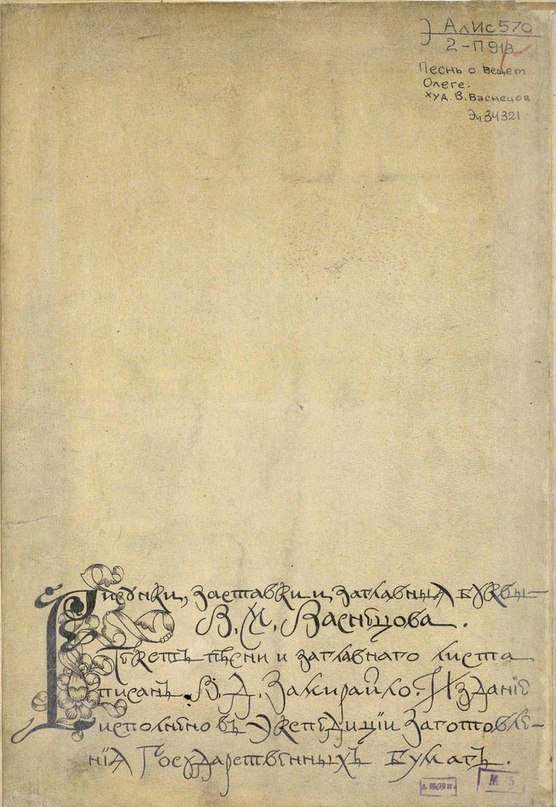 Э АлИс570
2-П 913
Песнь о вещем
Олеге.
худ. В. Васнецов
Эч34321
Рисунки, заставки и заглавныя буквы
В. М. Васнецова.
Текстъ пѣсни и заглавнаго листа
писанъ В. Д. Замирайло. Изданіе
исполнено въ Экспедиціи Заготовле-
нія Государственныхъ Бумагъ.